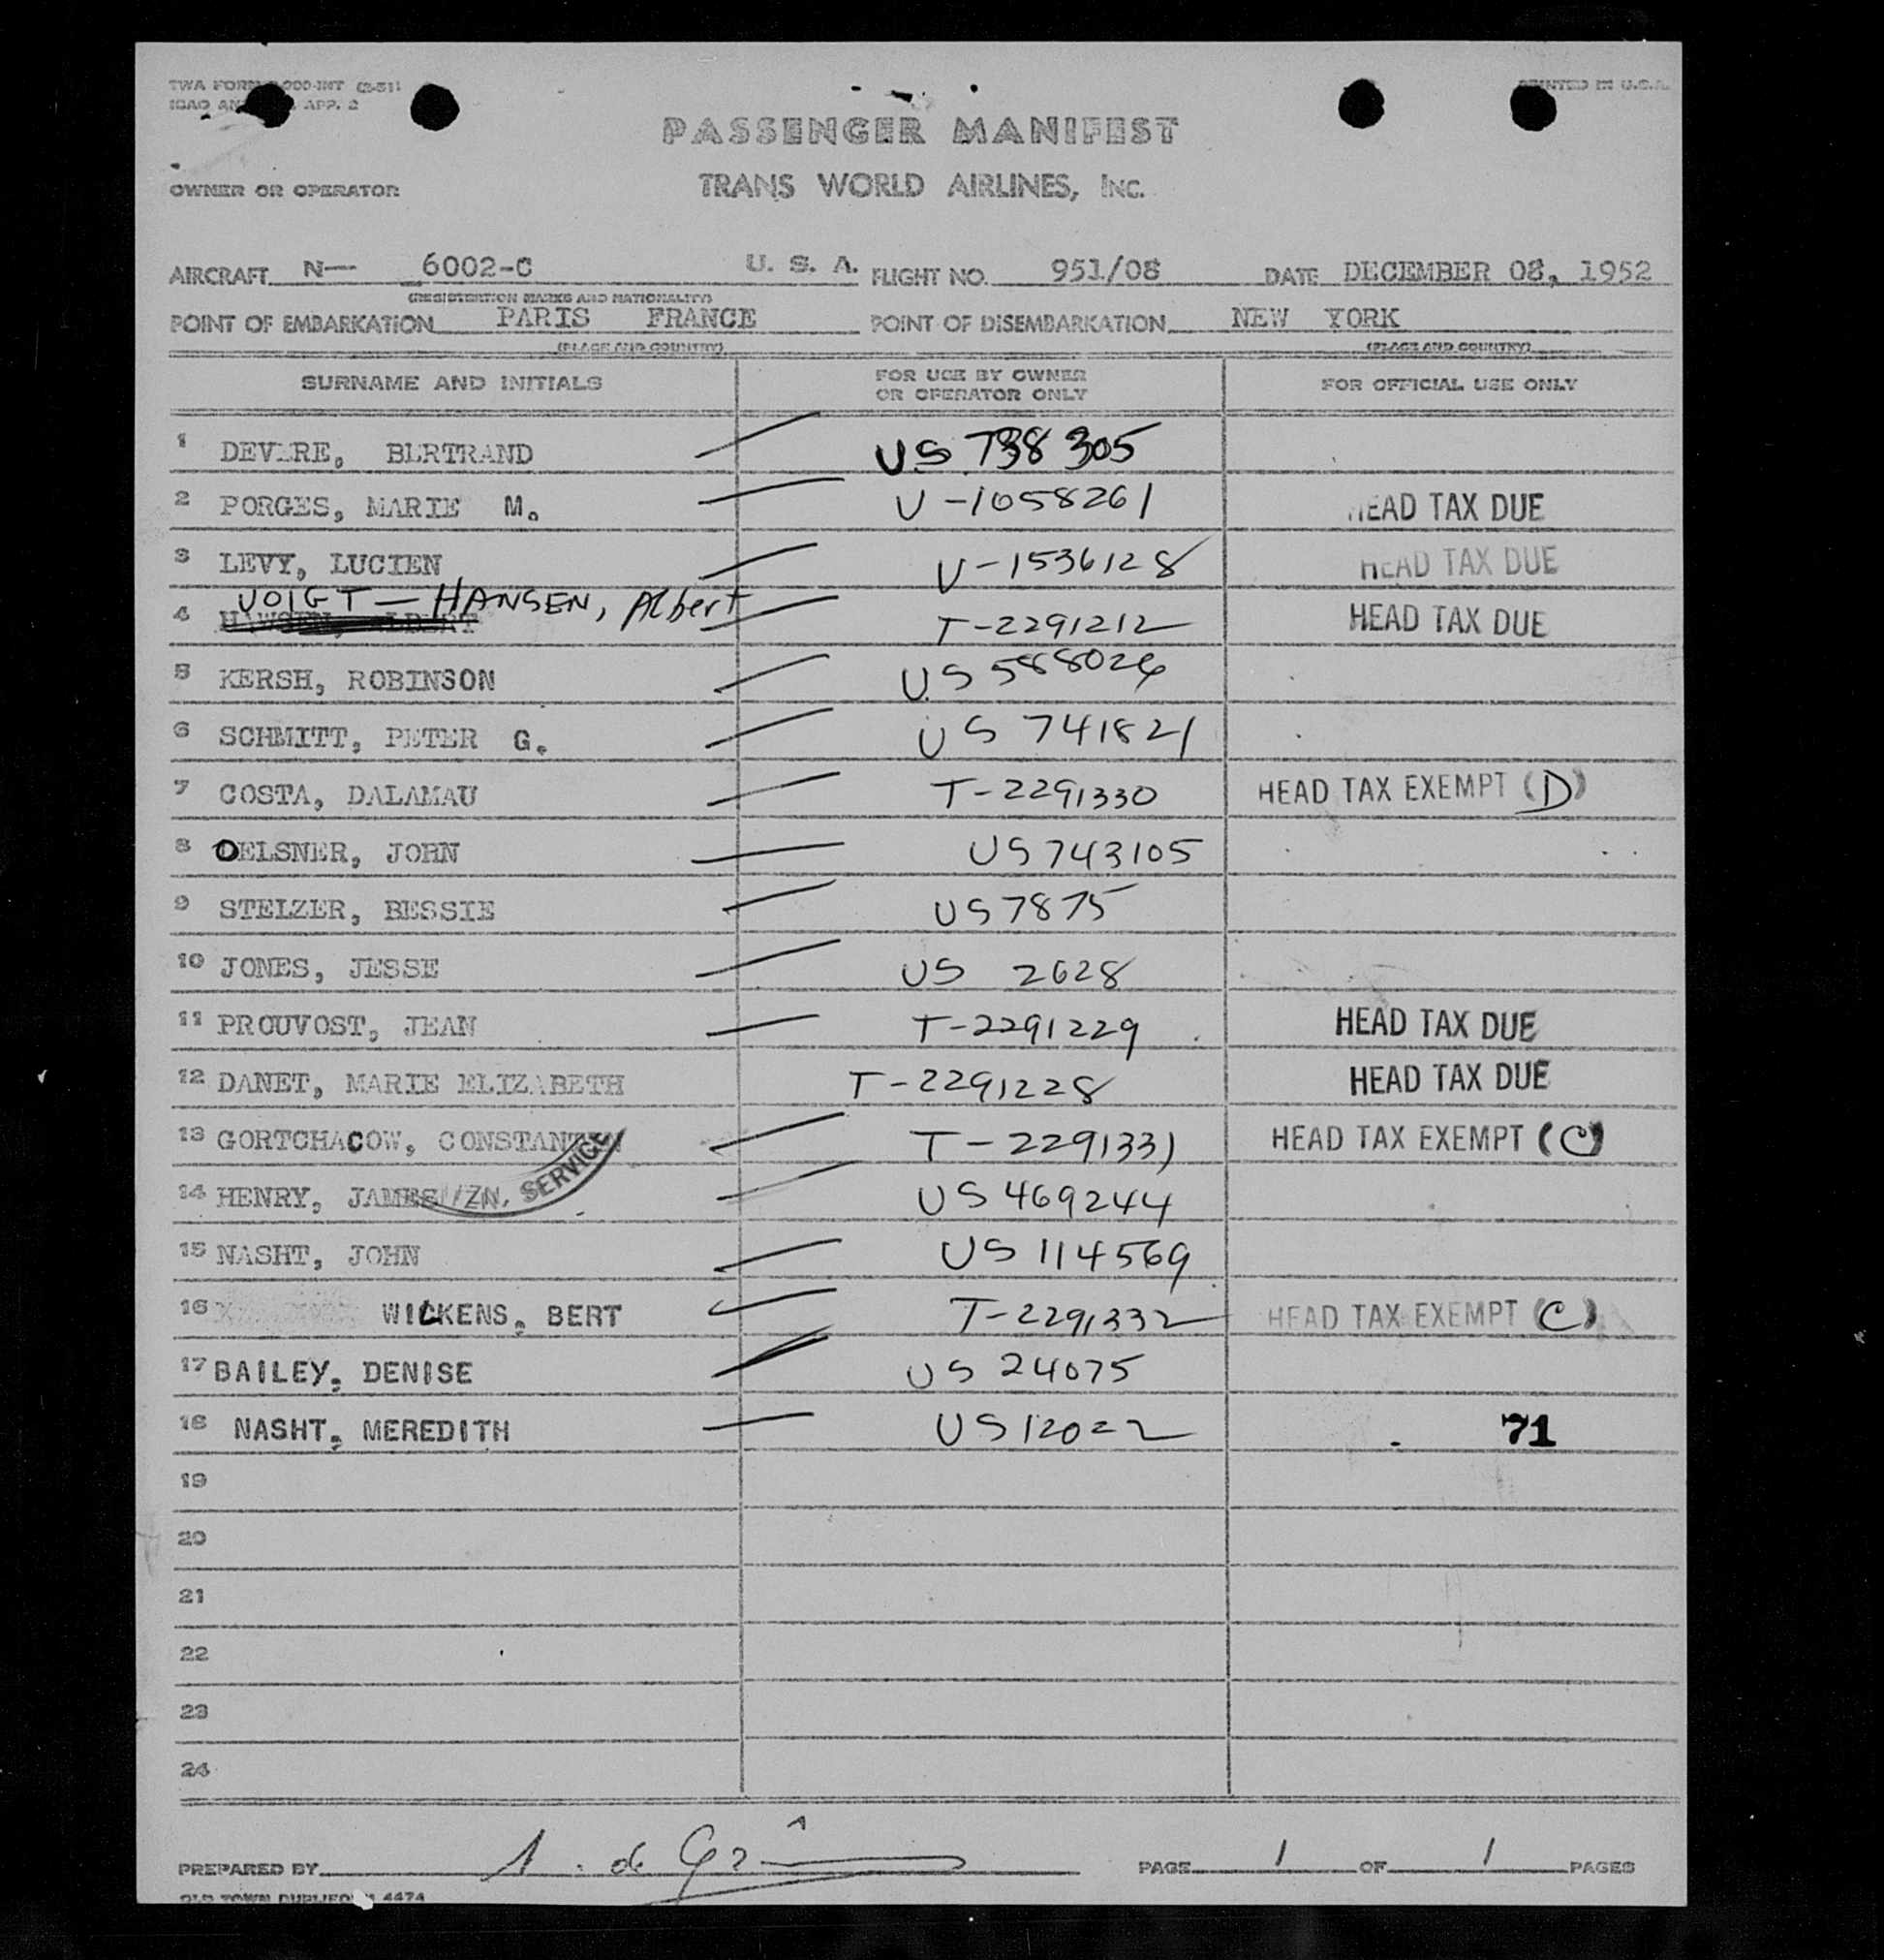 TWA FORM 000-INT (2-51)
ICAO APP. 2
PRINTED IN U.S.A.
PASSENGER MANIFEST
OWNER OR OPERATOR TRANS WORLD AIRLINES, INC.
AIRCRAFT N— 6002-C U. S. A. FLIGHT NO. 951/08 DATE DECEMBER 08, 1952
(REGISTRATION MARKS AND NATIONALITY)
POINT OF EMBARKATION PARIS FRANCE POINT OF DISEMBARKATION NEW YORK
(PLACE AND COUNTRY) (PLACE AND COUNTRY)
SURNAME AND INITIALS FOR USE BY OWNER OR OPERATOR ONLY FOR OFFICIAL USE ONLY
1 BERTRAND US 738305
2 PORGES, MARIE M. V-1058261 HEAD TAX DUE
3 LEVY, LUCIEN V-1536128 HEAD TAX DUE
VOIGT-HANSEN, Albert
4 T-2291212 HEAD TAX DUE
5 KERSH, ROBINSON US 588026
6 SCHMITT, PETER G. US 741821
7 COSTA, DALAMAU T-2291330 HEAD TAX EXEMPT (D)
8 OELSNER, JOHN US 743105
9 STELZER, BESSIE US 7875
10 JONES, JESSE US 2628
11 PROUVOST, JEAN T-2291229 HEAD TAX DUE
12 DANET, MARIE ELIZABETH T-2291228 HEAD TAX DUE
13 GORTCHACOW, CONSTANTIN T-2291331 HEAD TAX EXEMPT (C)
14 HENRY, JAMES US 469244
IZN. SERVICE
15 NASHT, JOHN US 114569
16 WILKENS, BERT T-2291332 HEAD TAX EXEMPT (C)
17 BAILEY, DENISE US 24075
18 NASHT, MEREDITH US 12022 71
19
20
21
22
23
24
PREPARED BY PAGE 1 OF 1 PAGES
OLD TOWN 4474